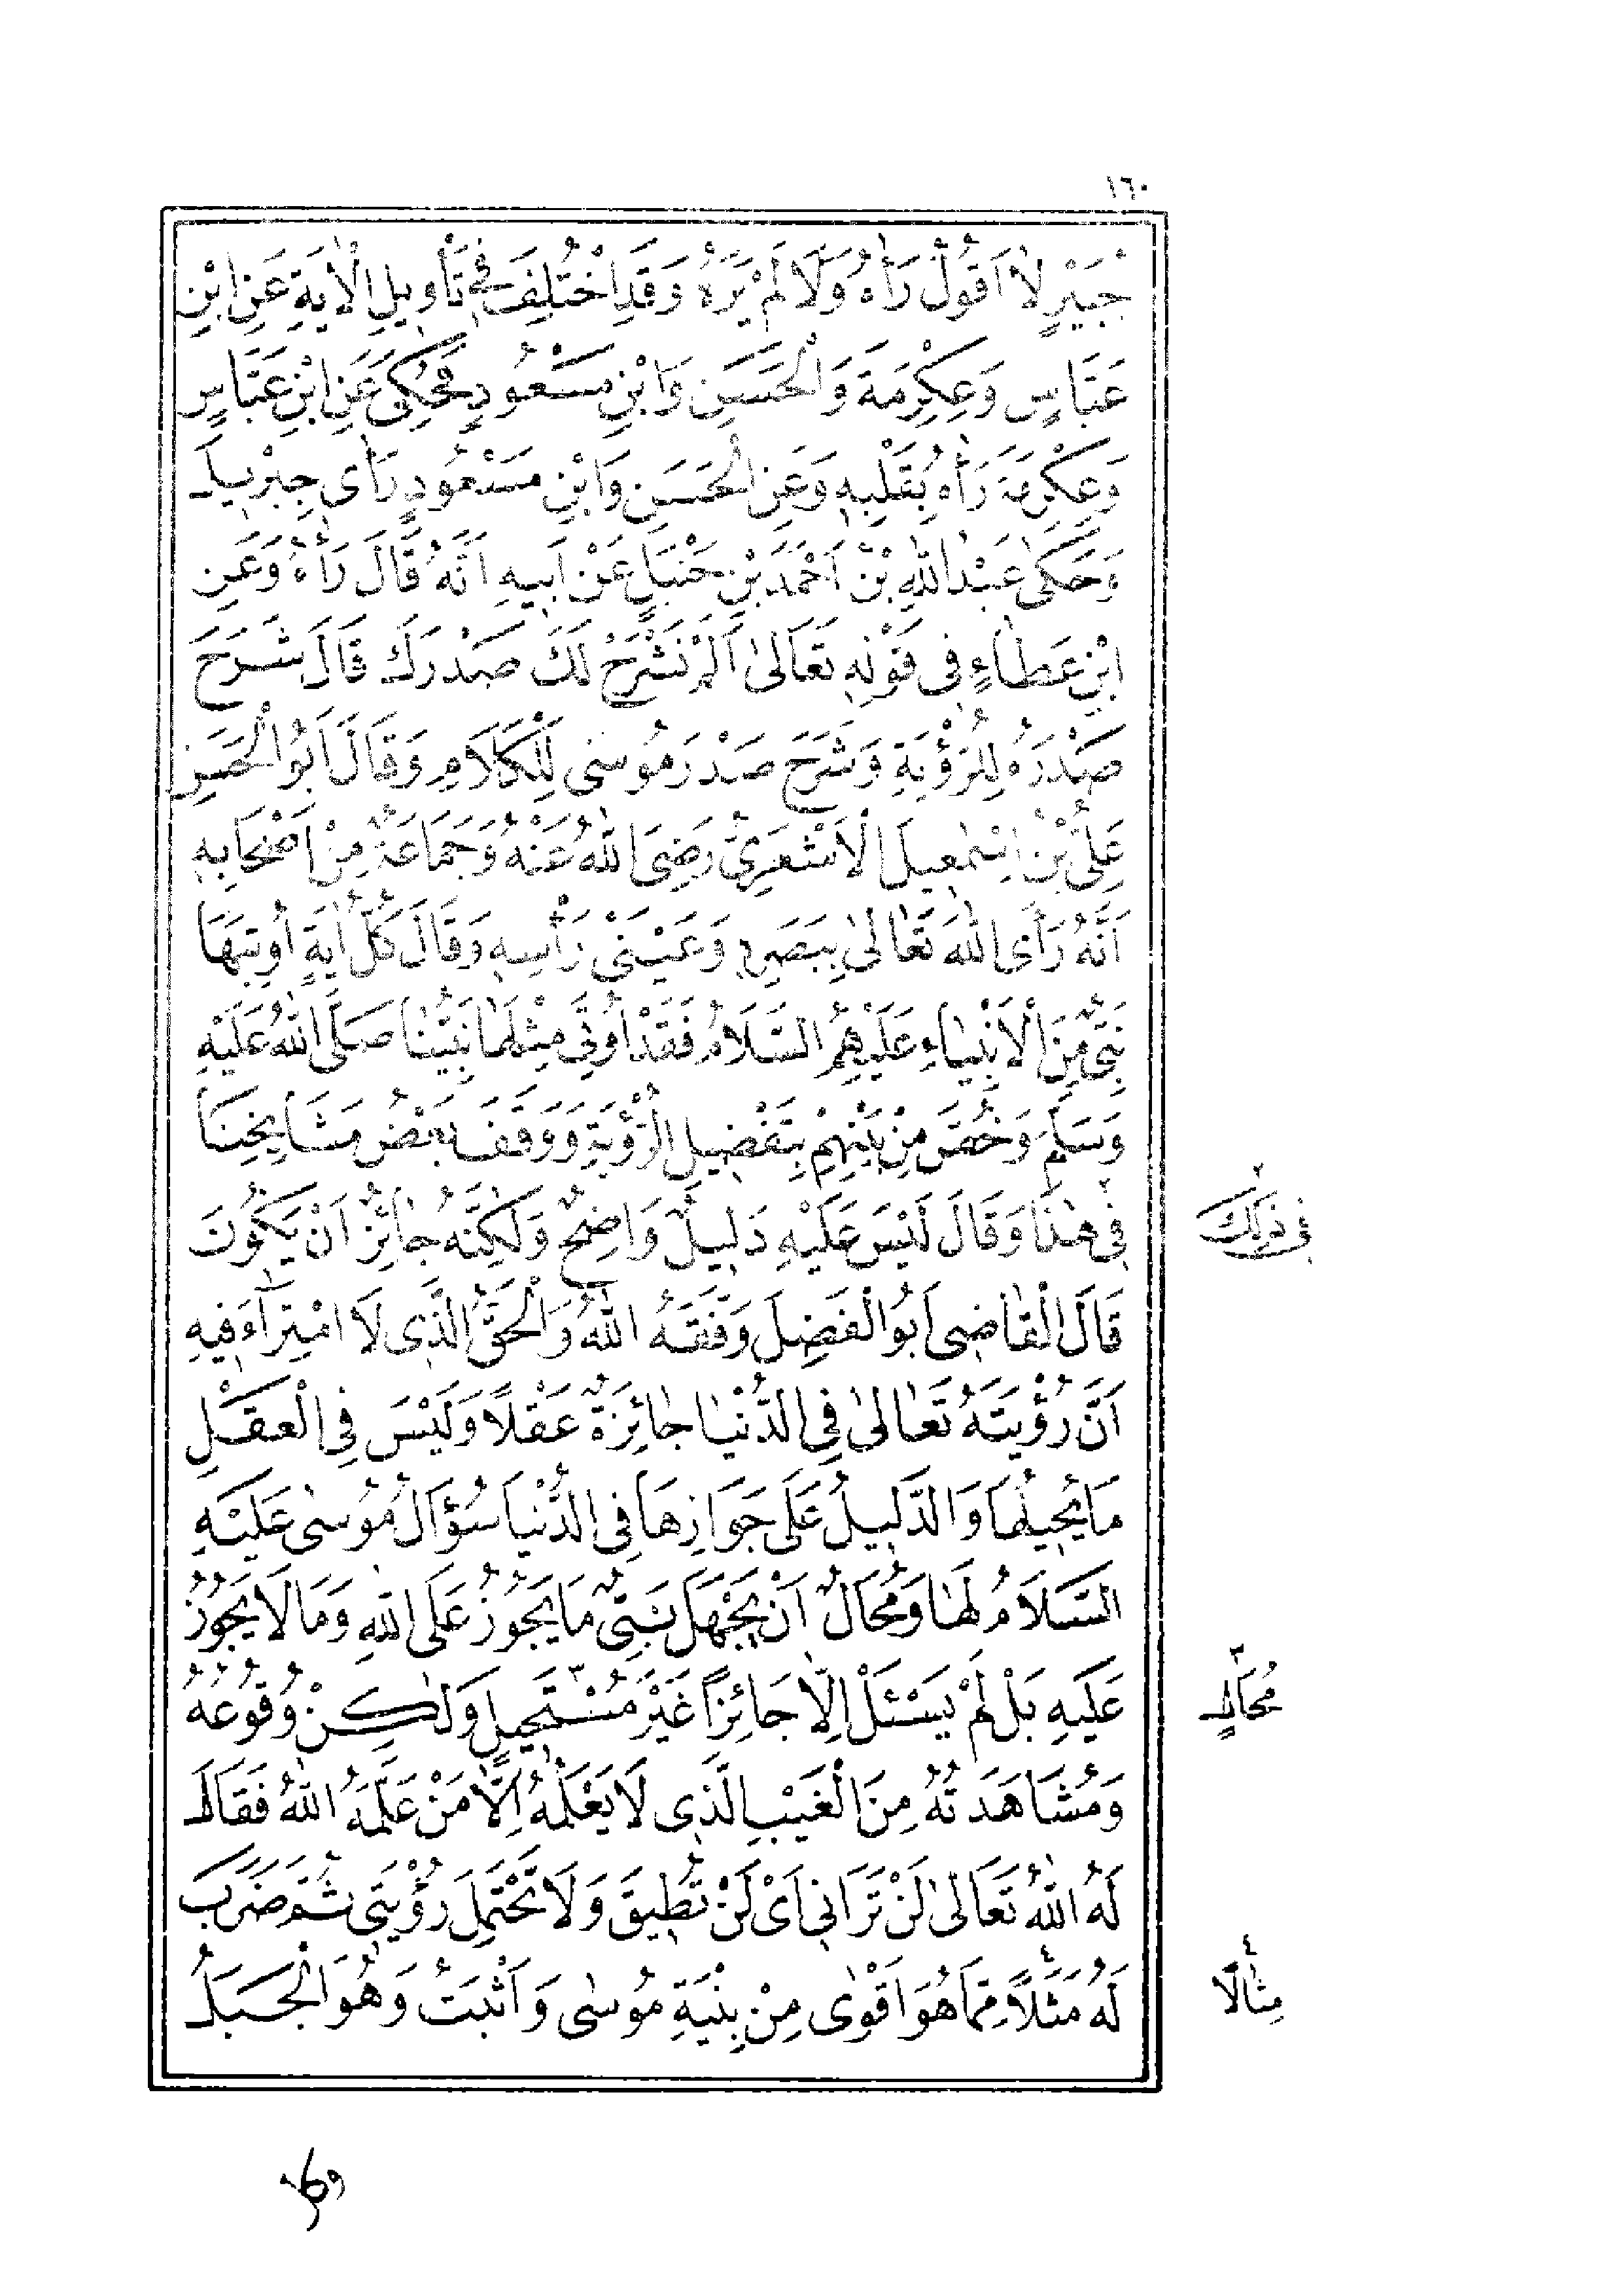 ١٦٠
جُبَيْرٍ لَا اَقُولُ رَاٰهُ وَلَا لَمْ يَرَهُ وَقَدِ اخْتُلِفَ فِى تَأْوِيلِ الْاٰيَةِ عَنِ ابْنِ
عَبَّاسٍ وَعِكْرِمَةَ وَالْحَسَنِ وَابْنِ مَسْعُودٍ فَحُكِىَ عَنِ ابْنِ عَبَّاسٍ
وَعِكْرِمَةَ رَاٰهُ بِقَلْبِهِ وَعَنِ الْحَسَنِ وَابْنِ مَسْعُودٍ رَاٰى جِبْرِيلَ
وَحَكٰى عَبْدُ اللّٰهِ بْنُ اَحْمَدَ بْنِ حَنْبَلٍ عَنْ اَبِيهِ اَنَّهُ قَالَ رَاٰهُ وَعَنِ
ابْنِ عَطَاءٍ فِى قَوْلِهِ تَعَالٰى اَلَمْ نَشْرَحْ لَكَ صَدْرَكَ قَالَ شَرَحَ
صَدْرَهُ لِلرُّؤْيَةِ وَشَرَحَ صَدْرَ مُوسٰى لِلْكَلَامِ وَقَالَ اَبُو الْحَسَنِ
عَلِىُّ بْنُ اِسْمٰعِيلَ الْاَشْعَرِىُّ رَضِىَ اللّٰهُ عَنْهُ وَجَمَاعَةٌ مِنْ اَصْحَابِهِ
اَنَّهُ رَاَى اللّٰهَ تَعَالٰى بِبَصَرِهِ وَعَيْنَىْ رَأْسِهِ وَقَالَ كُلُّ اٰيَةٍ اُوتِيَهَا
نَبِىٌّ مِنَ الْاَنْبِيَاءِ عَلَيْهِمُ السَّلَامُ فَقَدْ اُوتِىَ مِثْلَهَا نَبِيُّنَا صَلَّى اللّٰهُ عَلَيْهِ
وَسَلَّمَ وَخُصَّ مِنْ بَيْنِهِمْ بِتَفْضِيلِ الرُّؤْيَةِ وَوَقَفَ بَعْضُ مَشَايِخِنَا
فِى هٰذَا وَقَالَ لَيْسَ عَلَيْهِ دَلِيلٌ وَاضِحٌ وَلٰكِنَّهُ جَائِزٌ اَنْ يَكُونَ
٢ فِى ذٰلِكَ
قَالَ الْقَاضِى اَبُو الْفَضْلِ وَفَّقَهُ اللّٰهُ وَالْحَقُّ الَّذِى لَا امْتِرَاءَ فِيهِ
اَنَّ رُؤْيَتَهُ تَعَالٰى فِى الدُّنْيَا جَائِزَةٌ عَقْلًا وَلَيْسَ فِى الْعَقْلِ
مَا يُحِيلُهَا وَالدَّلِيلُ عَلٰى جَوَازِهَا فِى الدُّنْيَا سُؤَالُ مُوسٰى عَلَيْهِ
السَّلَامُ لَهَا وَمُحَالٌ اَنْ يَجْهَلَ نَبِىٌّ مَا يَجُوزُ عَلَى اللّٰهِ وَمَا لَا يَجُوزُ
عَلَيْهِ بَلْ لَمْ يَسْئَلْ اِلَّا جَائِزًا غَيْرَ مُسْتَحِيلٍ وَلٰكِنْ وُقُوعُهُ
٣ مُحَالٍ
وَمُشَاهَدَتُهُ مِنَ الْغَيْبِ الَّذِى لَا يَعْلَمُهُ اِلَّا مَنْ عَلَّمَهُ اللّٰهُ فَقَالَ
لَهُ اللّٰهُ تَعَالٰى لَنْ تَرَانِى اَىْ لَنْ تُطِيقَ وَلَا تَحْتَمِلَ رُؤْيَتِى ثُمَّ ضَرَبَ
لَهُ مَثَلًا مِمَّا هُوَ اَقْوٰى مِنْ بِنْيَةِ مُوسٰى وَاَثْبَتُ وَهُوَ الْجَبَلُ
٤ مِثَالًا